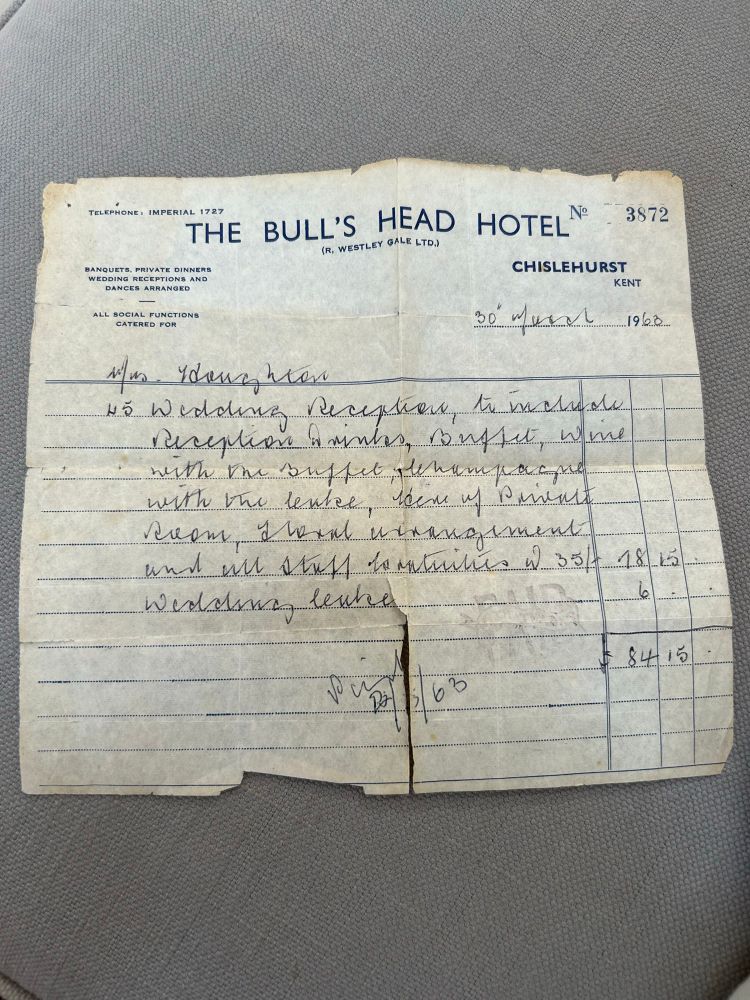 TELEPHONE: IMPERIAL 1727
Nº 3872
THE BULL'S HEAD HOTEL
(R. WESTLEY GALE LTD.)
BANQUETS, PRIVATE DINNERS
WEDDING RECEPTIONS AND
DANCES ARRANGED
CHISLEHURST
KENT
ALL SOCIAL FUNCTIONS
CATERED FOR
30th March 1963
Mrs. Houghton
45 Wedding Reception, to include
Reception Drinks, Buffet, Wine
with the Buffet, Champagne
with the Cake, Hire of Private
Room, Floral arrangement
and all Staff Gratuities @ 35/- 78 15 -
Wedding Cake 6 - -
£ 84 15 -
/63